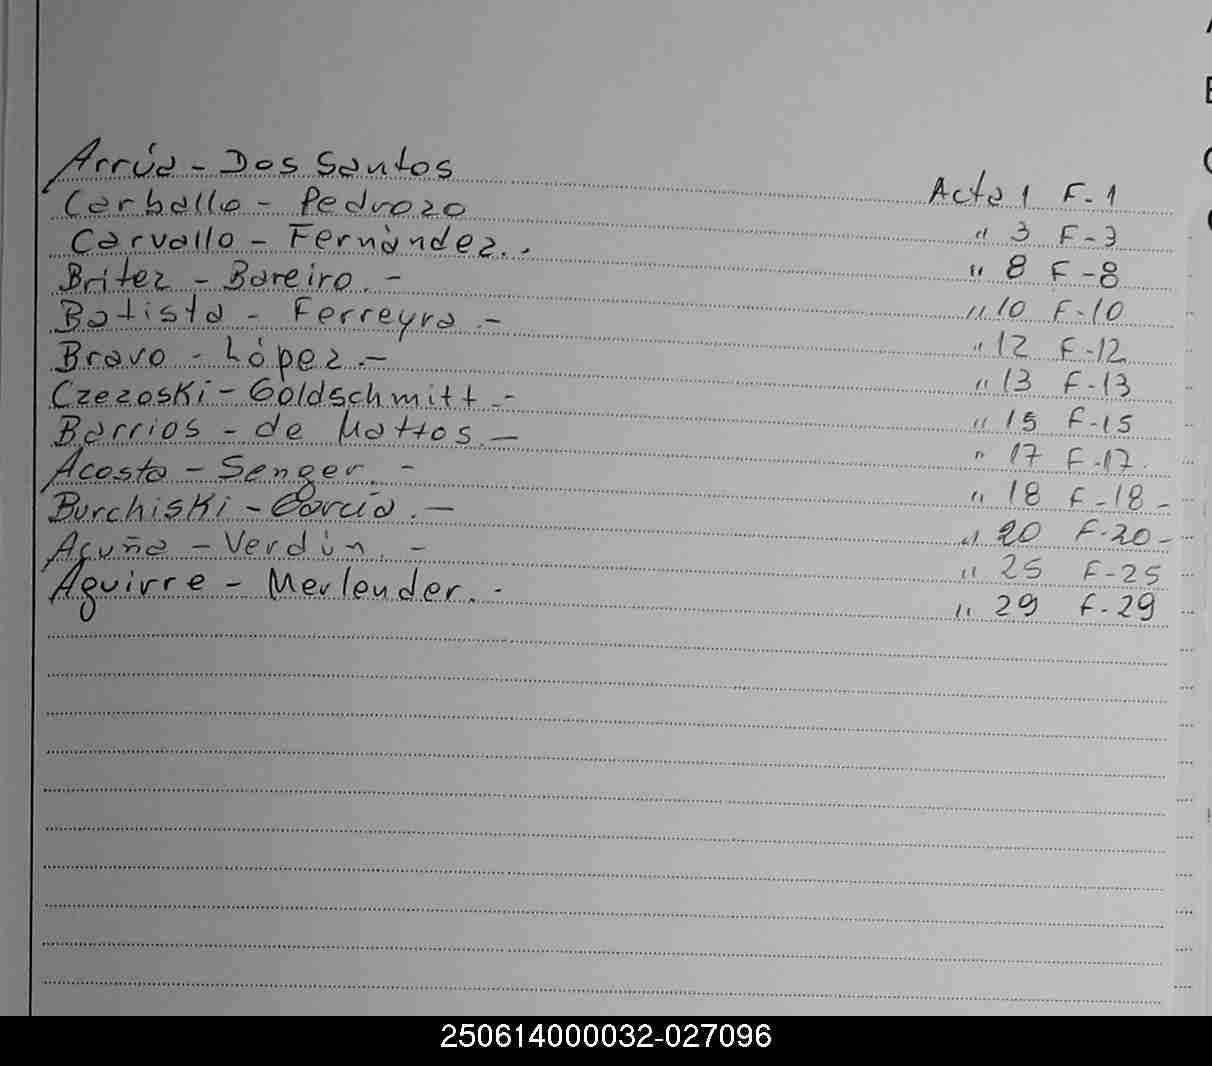 Arrúa - Dos Santos Acta 1 F-1
Carballo - Pedrozo " 3 F-3
Carvallo - Fernández.- " 8 F-8
Britez - Bareiro.- " 10 F-10
Batista - Ferreyra.- " 12 F-12
Bravo - López.- " 13 F-13
Czezoski - Goldschmitt.- " 15 F-15
Barrios - de Mattos.- " 17 F-17.
Acosta - Senger.- " 18 F-18-
Burchiski - García.- " 20 F-20-
Acuña - Verdún.- " 25 F-25
Aguirre - Merlender.- " 29 F-29
250614000032-027096